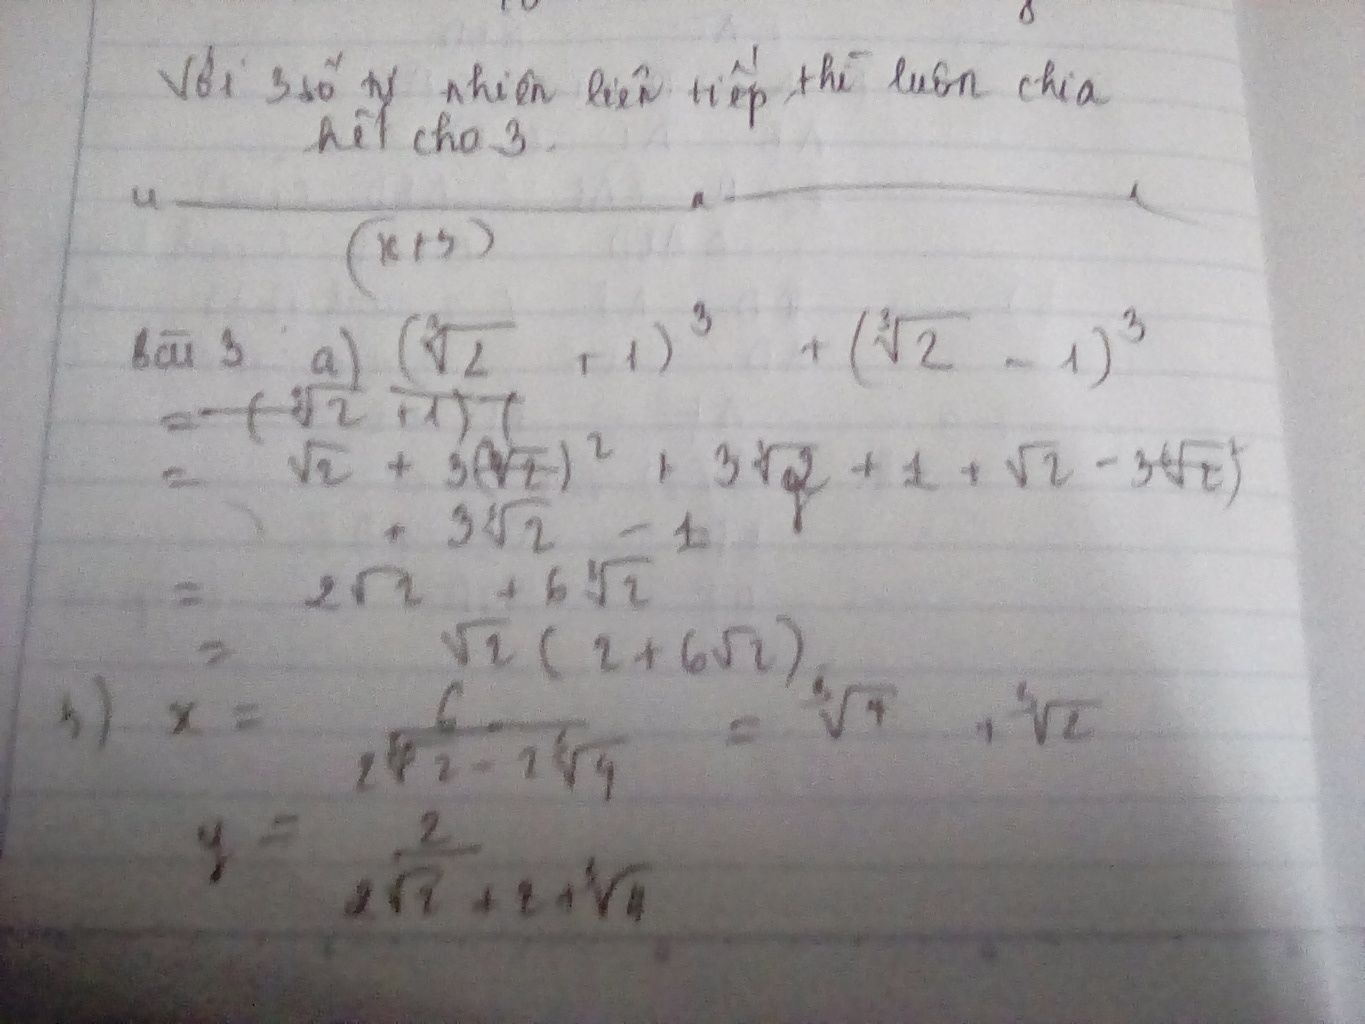 Với 3 số tự nhiên liên tiếp thì luôn chia
hết cho 3.
(x+3)
Bài 3 a) (∛2 + 1)³ + (∛2 - 1)³
= (∛2 + 1) (
= √2 + 3(∛2)² + 3∛2 + 1 + √2 - 3(∛2)²
+ 3∛2 - 1
= 2√2 + 6∛2
= √2 ( 2 + 6√2)
x = 6 / (2∛2 - 2∛4) = ∛4 + ∛2
y = 2 / (2√2 + 2 + ∛4)